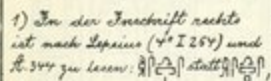 1) In der Inschrift rechts
ist nach Lepsius (4° I 254) und
A. 344 zu lesen: statt